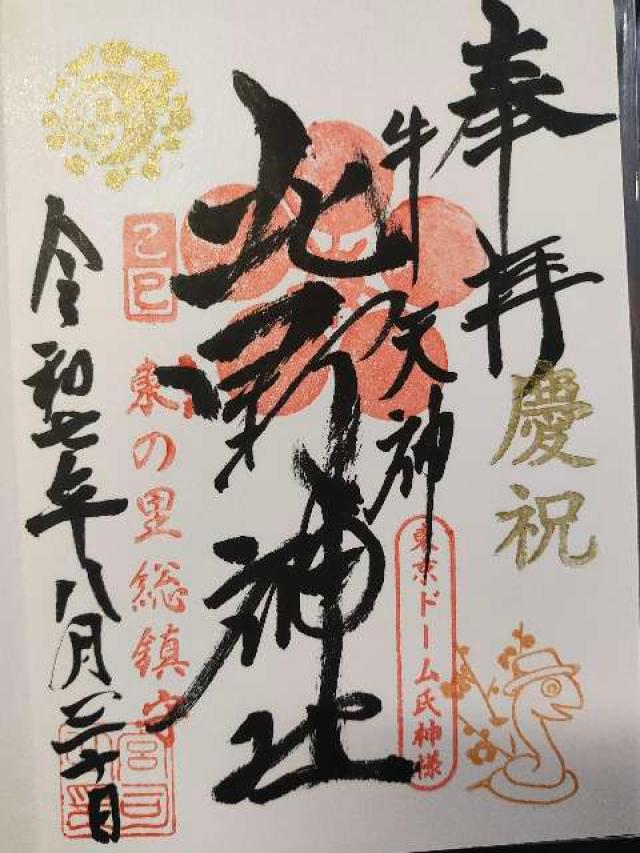 奉拝
慶祝
牛天神
東京ドーム氏神様
北野神社
己巳
東の里総鎮守
令和七年八月三十日